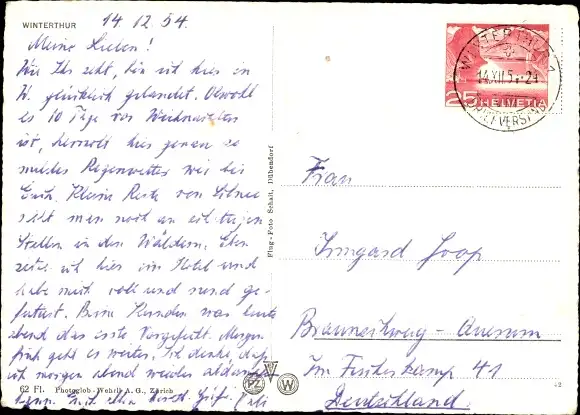 WINTERTHUR 14.12.54.
Meine Lieben!
Wie Ihr seht, bin ich hier in
W. glücklich gelandet. Obwohl
es 10 Tage vor Weihnachten
ist, herrscht hier genau so
mildes Regenwetter wie bei
Euch. Kleine Reste von Schnee
sieht man noch an einigen
Stellen in den Wäldern. Eben
ich hier im Hotel und
habe mich voll und rund ge-
futtert. Beim Kunden war heute
abend das erste Vorgefecht. Morgen
früh geht es weiter. Ich denke, daß
ich morgen abend wieder
kann. herzl. Grüße
62 Fl. Photoglob-Wehrli A.G., Zürich
Flug-Foto Schait, Dübendorf
PZ W
WINTERTHUR 1
14.XII.54-21
BRIEFVERSAND
25 HELVETIA
Frau
Irmgard Joop
Braunschweig - Querum
Im Fischerkamp 41
Deutschland.